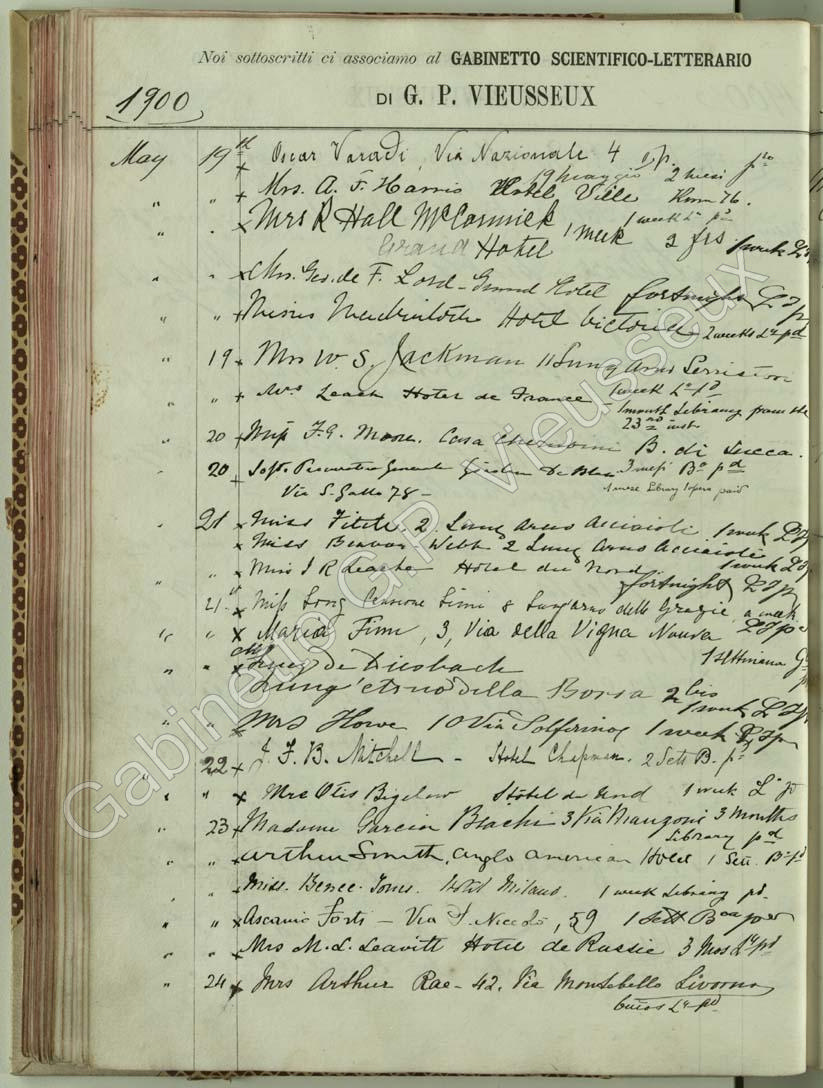 Noi sottoscritti ci associamo al GABINETTO SCIENTIFICO-LETTERARIO
1900
DI G. P. VIEUSSEUX
May 19th Oscar Varadi, Via Nazionale 4
19 maggio 2 mesi
" " Mrs. A. F. Harris Hotel Ville Room 76.
1 week
" " Mrs R Hall McCormick 1 week 2 frs
Grand Hotel 1 week
" " Mrs. Geo. de F. Lord - Grand Hotel fortnight
" " Hotel Victoria 2 weeks Ly pd
" 19 Mrs W. S. Jackman 11 Lung Arno Serristori
" " Mrs Leach Hotel de France 1 week Ly pd
1 month Library from the
23rd inst.
" 20 Miss F. G. Moore. Casa B. di Lucca.
" 20 Sost. Procuratore Generale 3 mesi Bo pd
Via S. Gallo 78 -
1 mese Library paid
" 21 Miss 2. Lung Arno Acciaioli 1 week
Miss Webb 2 Lung Arno Acciaioli
1 week
" " Miss J R Hotel du Nord
fortnight
" 21st Miss Long Pensione Simi 8 Lungarno delle Grazie a week
" " Maria Finn, 3, Via della Vigna Nuova
1 settimana
" " de Diesbach
Lung'Arno della Borsa 2 bis
1 week
" " Mrs Howe 10 Via Solferino 1 week
22 J. F. B. Mitchell - Hotel Chapman. 2 Sett. B. pd
" " Mrs Otis Bigelow Hôtel du Nord 1 week L pd
23 Madame Garcia 3 Via Manzoni 3 months
Library pd
" " Arthur Smith, Anglo American Hotel 1 Sett. B pd
" " Miss. Bence-Jones. Hotel Milano. 1 week Library pd.
" " Ascanio Forti - Via S. Nicolò, 59 1 Sett
" " Mrs M. L. Leavitt Hotel de Russie 3 Mos Ly pd
" 24 Mrs Arthur Rae - 42. Via Montebello Livorno
6 mos Ly pd
Gabinetto G.P. Vieusseux